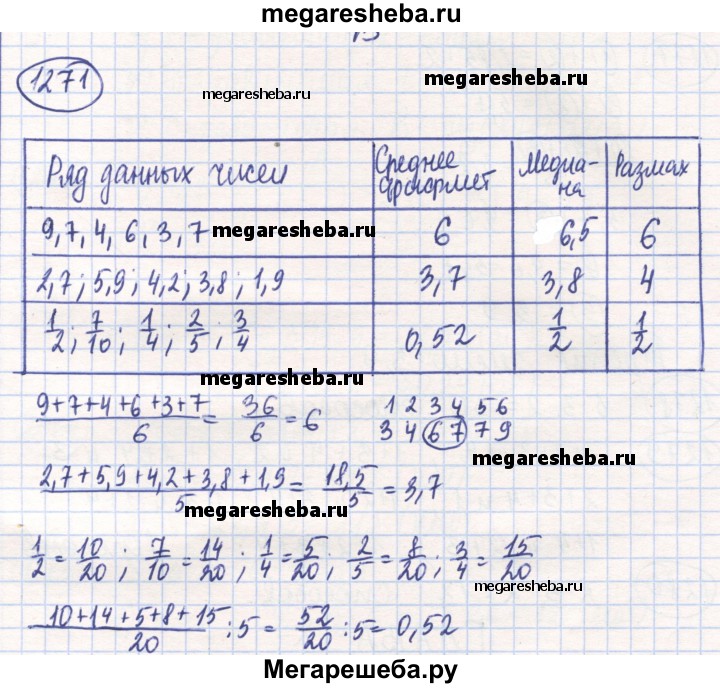 megaresheba.ru
1271
megaresheba.ru
megaresheba.ru
Ряд данных чисел | Среднее арифмет | Медиа-на | Размах
9, 7, 4, 6, 3, 7 megaresheba.ru | 6 | 6,5 | 6
2,7; 5,9; 4,2; 3,8; 1,9 | 3,7 | 3,8 | 4
1/2; 7/10; 1/4; 2/5; 3/4 | 0,52 | 1/2 | 1/2
megaresheba.ru
(9+7+4+6+3+7)/6 = 36/6 = 6
1 2 3 4 5 6
3 4 6 7 7 9
megaresheba.ru
(2,7+5,9+4,2+3,8+1,9)/5 = 18,5/5 = 3,7
megaresheba.ru
1/2 = 10/20; 7/10 = 14/20; 1/4 = 5/20; 2/5 = 8/20; 3/4 = 15/20
megaresheba.ru
(10+14+5+8+15)/20 : 5 = 52/20 : 5 = 0,52
Мегарешеба.ру